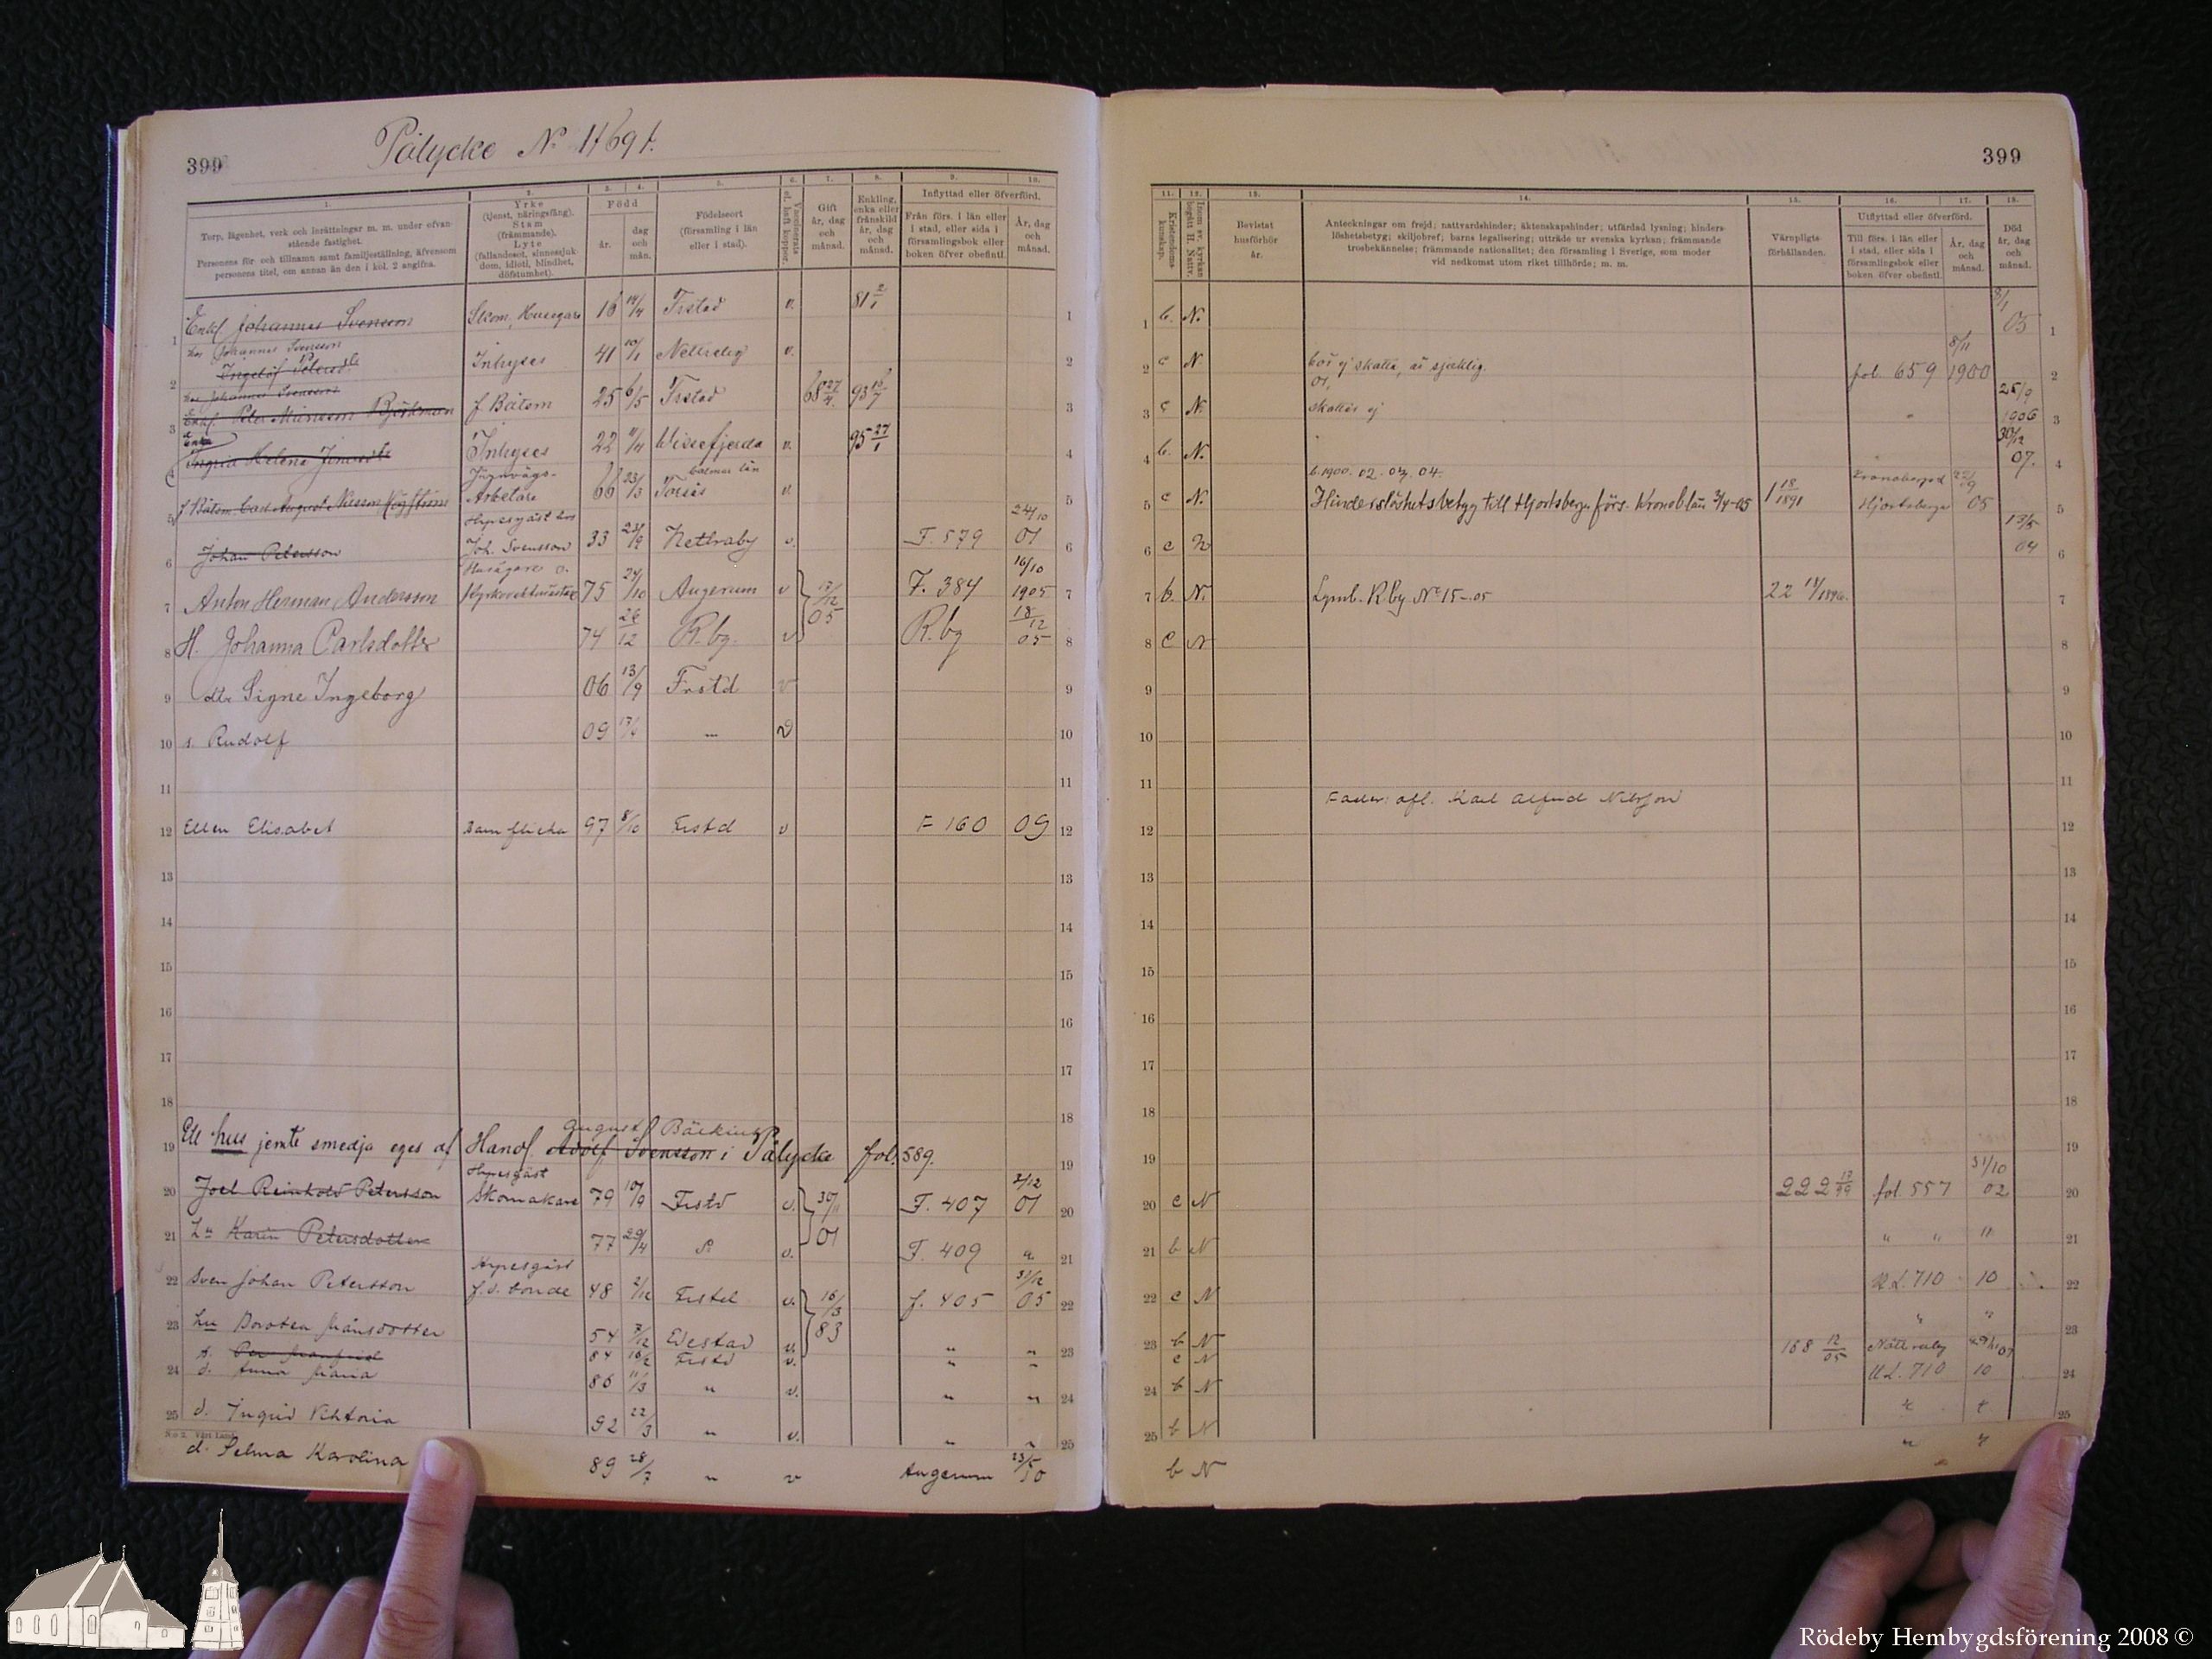 399
Pålycke No 1/69 f.
1. 2. 3. 4. 5. 6. 7. 8. 9. 10.
Torp, lägenhet, verk och inrättningar m. m. under ofvanstående fastighet.
Personens för- och tillnamn samt familjeställning, äfvensom personens titel, om annan än den i kol. 2 angifna.
Yrke (tjenst, näringsfång). Stam (främmande). Lyte (fallandesot, sinnessjukdom, idioti, blindhet, döfstumhet).
Född
år. dag och mån.
Födelseort (församling i län eller i stad).
Vaccinerats el. haft koppor.
Gift år, dag och månad.
Enkling, enka eller frånskild år, dag och månad.
Inflyttad eller öfverförd.
Från förs. i län eller i stad, eller sida i församlingsbok eller boken öfver obefintl.
År, dag och månad.
1 Enkl. Johannes Svensson Skom, Husegare 16 14/4 Frstad v. 81 2/1 1
hos Johannes Svensson
2 Ingelöf Petersdr Inhyses 41 10/1 Nettraby v. 2
hos Johannes Svensson
3 Enkl. Peter Månsson Björkman f. Båtsm 25 6/5 Frstad 68 27/4 93 16/7 3
Enka
4 Ingrid Helena Jonsdtr Inhyses 22 11/4 Wissefjerda v. 95 27/1 4
Kalmar län
5 f. Båtsm Carl August Nilsson Högström Jernvägs-Arbetare 66 23/3 Torsås v. 5
6 Johan Petersson Hyresgäst hos Joh. Svensson 33 23/9 Nettraby v. F. 579 24/10 01 6
7 Anton Herman Andersson Husägare o. Kyrkovaktmästare 75 24/10 Augerum v 17/12 05 F. 384 16/10 1905 7
8 H. Johanna Carlsdotter 74 26/12 R.by. v R.by 18/12 05 8
9 dtr Signe Ingeborg 06 13/9 Frstd v 9
10 s. Rudolf 09 v 10
11 11
12 Ellen Elisabet Barnflicka 97 8/10 Frstd v F 160 09 12
13 13
14 14
15 15
16 16
17 17
18 18
August Bäcking
19 Ett hus jemte smedja eges af Handl. Adolf Svensson i Pålycke fol. 589. 19
20 Joel Reinhold Petersson Hyresgäst Skomakare 79 10/9 Frstd v. 30/11 01 F. 407 2/12 01 20
21 H. Karin Petersdotter 77 29/4 v. F. 409 21
22 Sven Johan Petersson Hyresgäst f.d. bonde 48 2/12 Frstd v. 16/3 83 f. 405 31/12 05 22
23 Hu Dorotea Månsdotter 54 7/12 Edestad v. " " 23
s. Per Manfrid 84 16/2 Frstd v. " "
24 d. Anna Maria 86 11/3 " v. " " 24
25 d. Ingrid Viktoria 92 22/3 " v. " " 25
No 2. Vårt Land
d. Selma Karolina 89 28/7 " v Augerum 23/5 10
399
11. 12. 13. 14. 15. 16. 17. 18.
Kristendomskunskap.
Inom sv. kyrkan begått H. Nattv.
Bevistat husförhör år.
Anteckningar om frejd; nattvardshinder; äktenskapshinder; utfärdad lysning; hinderslöshetsbetyg; skiljobref; barns legalisering; utträde ur svenska kyrkan; främmande trosbekännelse; främmande nationalitet; den församling i Sverige, som moder vid nedkomst utom riket tillhörde; m. m.
Värnpligtsförhållanden.
Utflyttad eller öfverförd.
Till förs. i län eller i stad, eller sida i församlingsbok eller boken öfver obefintl.
År, dag och månad.
Död år, dag och månad.
1 b. N. 05 1
2 c N. bör ej skatta, är sjuklig. 01. fol. 659 8/11 1900 2
3 c N. skattas ej 25/9 1906 3
4 b. N. 30/12 07. 4
b. 1900. 02. 03. 04.
5 c N. Hinderslöshetsbetyg till Hjortsberga förs. Kronob. län 3/4-05 1 18/1891 Kronobergs l Hjortsberga 22/9 05 5
6 c N 13/5 04 6
7 b. N. Lysnb. R.by No 15-05 22 18/1896. 7
8 c N 8
9 9
10 10
11 Fader: afl. Karl Alfrid Nilsson 11
12 12
13 13
14 14
15 15
16 16
17 17
18 18
19 19
20 c N 222 17/99 fol. 557 31/10 02 20
21 b N " " " 21
22 c N U.L. 710 10 22
23 b N " " 23
c N 168 12/05 Nättraby 29/10 07
24 b N U.L. 710 10 24
25 b N " " 25
b N " "
Rödeby Hembygdsförening 2008 ©